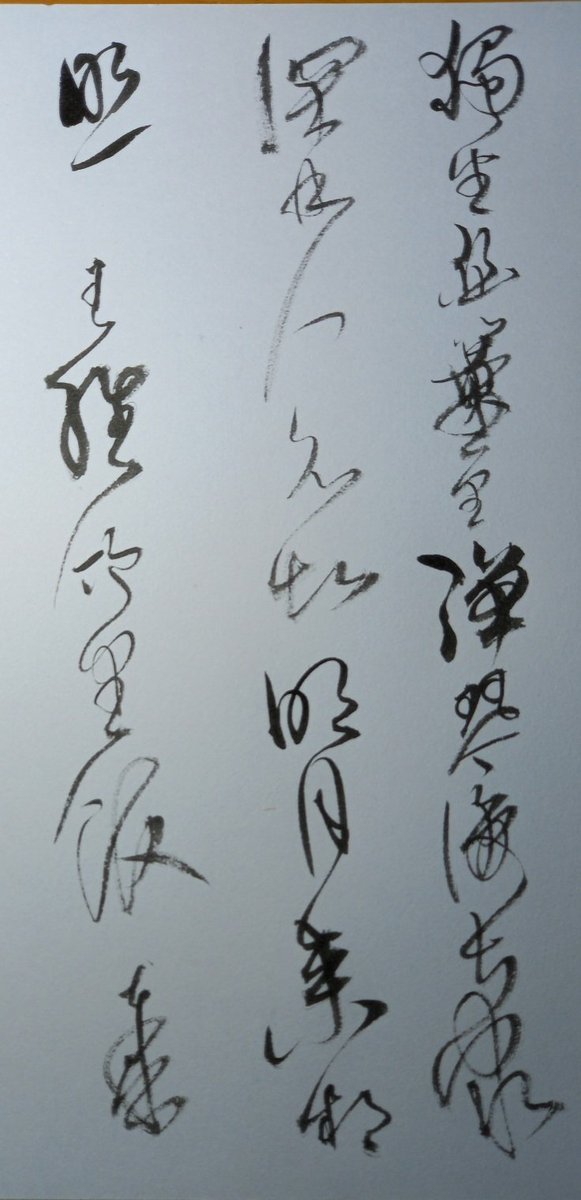 獨坐幽篁里彈琴復長嘯
深林人不知明月來相
照 王維竹里館